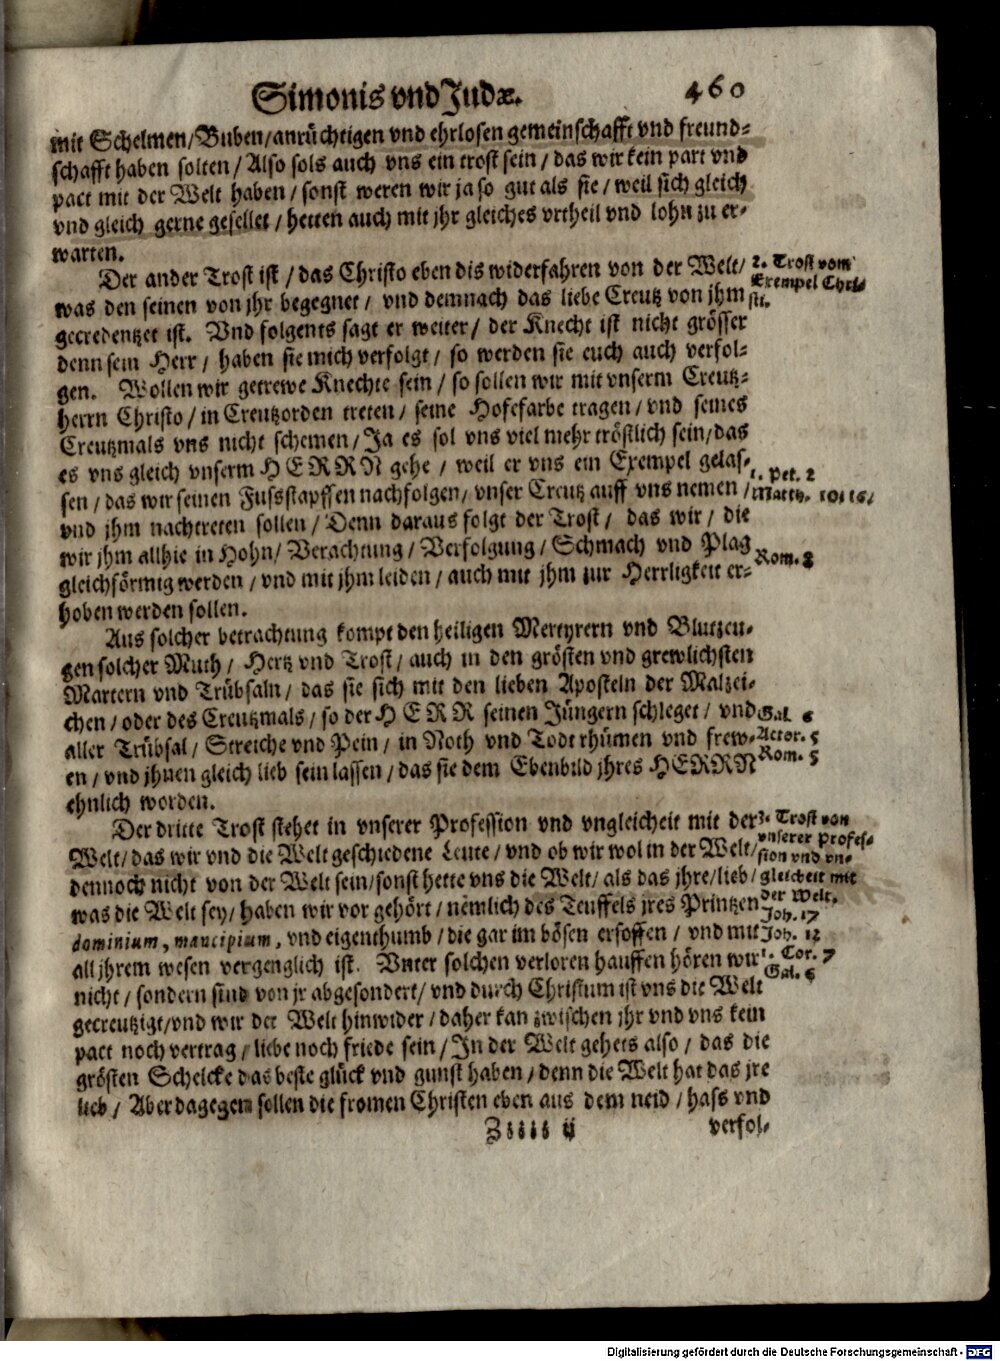 Simonis vnd Judæ. 460
mit Schelmen/Buben/anrüchtigen vnd ehrlosen gemeinschafft vnd freund-
schafft haben solten/Also sols auch vns ein trost sein/das wir kein part vnd
pact mit der Welt haben/sonst weren wir ja so gut als sie/weil sich gleich
vnd gleich gerne gesellet/hetten auch mit jhr gleiches vrtheil vnd lohn zu er-
warten.
Der ander Trost ist/das Christo eben dis widerfahren von der Welt/
was den seinen von jhr begegnet/vnd demnach das liebe Creutz von jhm
gecredentzet ist. Vnd folgents sagt er weiter/der Knecht ist nicht grösser
denn sein Herr/haben sie mich verfolgt/so werden sie euch auch verfol-
gen. Wollen wir getrewe Knechte sein/so sollen wir mit vnserm Creutz-
herrn Christo/in Creutzorden treten/seine Hofefarbe tragen/vnd seines
Creutzmals vns nicht schemen/Ja es sol vns viel mehr tröstlich sein/das
es vns gleich vnserm HERRN gehe/weil er vns ein Exempel gelas-
sen/das wir seinen Fussstapffen nachfolgen/vnser Creutz auff vns nemen/
vnd jhm nachtreten sollen/Denn daraus folgt der Trost/das wir/die
wir jhm allhie in Hohn/Verachtung/Verfolgung/Schmach vnd Plag
gleichförmig werden/vnd mit jhm leiden/auch mit jhm zur Herrligkeit er-
hoben werden sollen.
Aus solcher betrachtung kompt den heiligen Mertyrern vnd Blutzeu-
gen solcher Muth/Hertz vnd Trost/auch in den grösten vnd grewlichsten
Martern vnd Trübsaln/das sie sich mit den lieben Aposteln der Malzei-
chen/oder des Creutzmals/so der HERR seinen Jüngern schleget/vnd
aller Trübsal/Streiche vnd Pein/in Noth vnd Todt rhümen vnd frew-
en/vnd jhnen gleich lieb sein lassen/das sie dem Ebenbild jhres HERRN
ehnlich worden.
Der dritte Trost stehet in vnserer Profession vnd vngleicheit mit der
Welt/das wir vnd die Welt geschiedene Leute/vnd ob wir wol in der Welt/
dennoch nicht von der Welt sein/sonst hette vns die Welt/als das jhre/lieb/
was die Welt sey/haben wir vor gehört/nemlich des Teuffels jres Printzen
dominium, mancipium, vnd eigenthumb/die gar im bösen ersoffen/vnd mit
all jhrem wesen vergenglich ist. Vnter solchen verloren hauffen hören wir
nicht/sondern sind von jr abgesondert/vnd durch Christum ist vns die Welt
gecreutzigt/vnd wir der Welt hinwider/daher kan zwischen jhr vnd vns kein
pact noch vertrag/liebe noch friede sein/In der Welt gehets also/das die
grösten Schelcke das beste glück vnd gunst haben/denn die Welt hat das jre
lieb/Aber dagegen sollen die fromen Christen eben aus dem neid/hass vnd
Ziiii ij verfol-
2. Trost vom
Exempel Chri-
sti.
1. Pet. 2
Matth. 10. 16.
Rom. 8
Gal. 6
Actor. 5
Rom. 5
3. Trost von
vnserer Profes-
sion vnd vn-
gleicheit mit
der Welt.
Joh. 17
Joh. 12
1. Cor. 7
Gal. 6
Digitalisierung gefördert durch die Deutsche Forschungsgemeinschaft - DFG